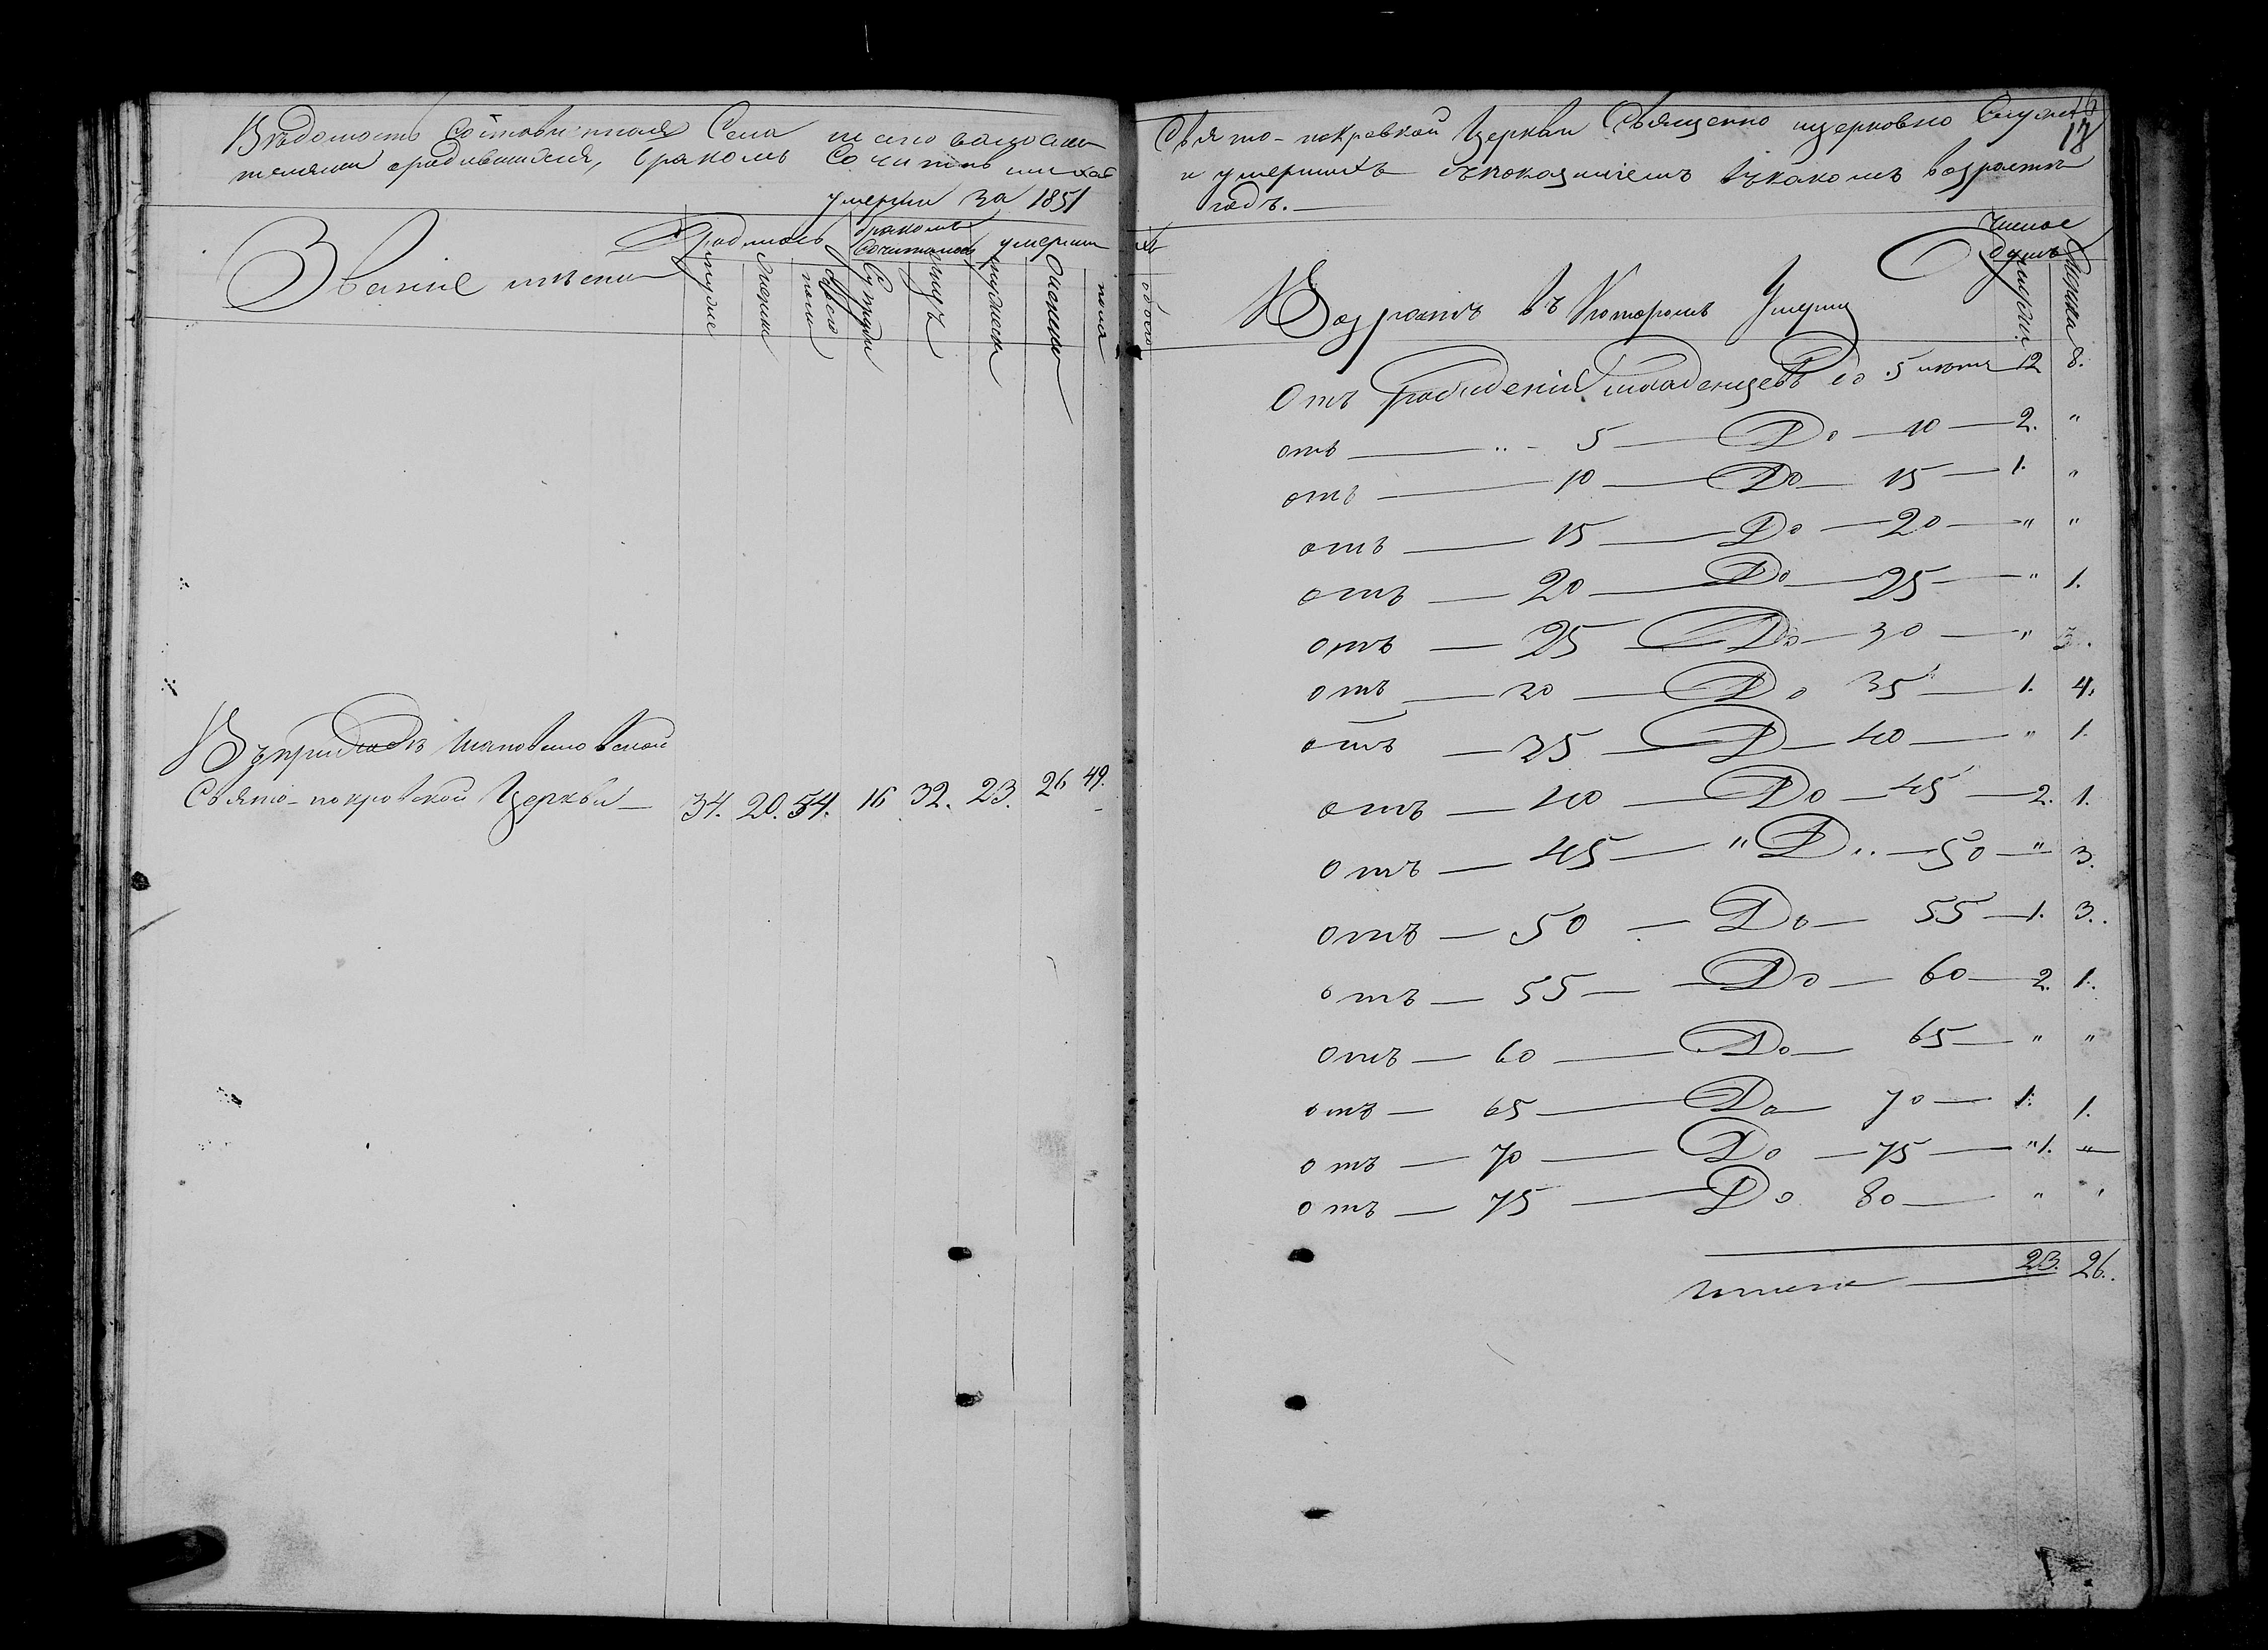 Вѣдомость Составленная Села
телями ородившихся, бракомъ Сочитав шихся
умерши за 1851
Званіе мѣста
Родилось
бракомъ Сочиталось
умерши
мужие
женски
обоего пола
Супруги
лицъ
мужеска
Женски
пола
Въ приходѣ Шаповаловской
Свято-покровской Церкви — 34. 20. 54. 16 32. 23. 26 49.
16
18
Свято-покровской Церкви Священно ицерковно Служи
и умершихъ съ показаніемъ въ какомъ возрастѣ
годъ. —
ихъ
обоего
Возрастъ въ Которомъ Умерли
Число душъ
Мужеска
Женска
Отъ рожденія младенцевъ до 5 лѣтъ 12 8.
отъ — " - 5 — До — 10 — 2. "
отъ — 10 — До — 15 — 1. "
отъ — 15 — До — 20 — " "
отъ — 20 — До — 25 — " 1.
отъ — 25 — До — 30 — " 3.
отъ — 30 — До 35 — 1. 4.
отъ — 35 — До — 40 — " 1.
отъ — 40 — До — 45 — 2. 1.
отъ — 45 — " До — 50 — " 3.
отъ — 50 — До — 55 — 1. 3.
отъ — 55 — До — 60 — 2. 1.
отъ — 60 — До — 65 — " "
отъ — 65 — До — 70 — 1. 1.
отъ — 70 — До — 75 — " 1. "
отъ — 75 — До 80 — " "
Итого — 23. 26.